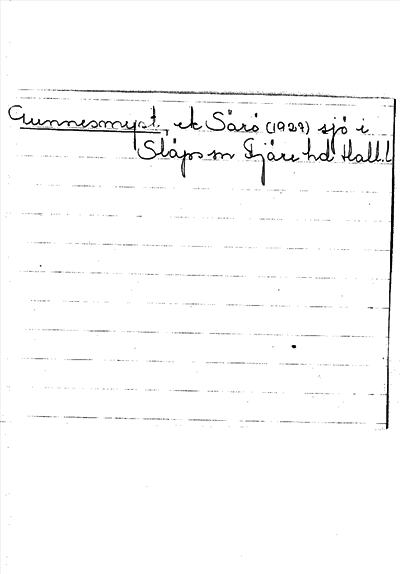 Gunnesmyst, ek Särö (1927) sjö i
Släps sn Fjäre hd Hall.l.